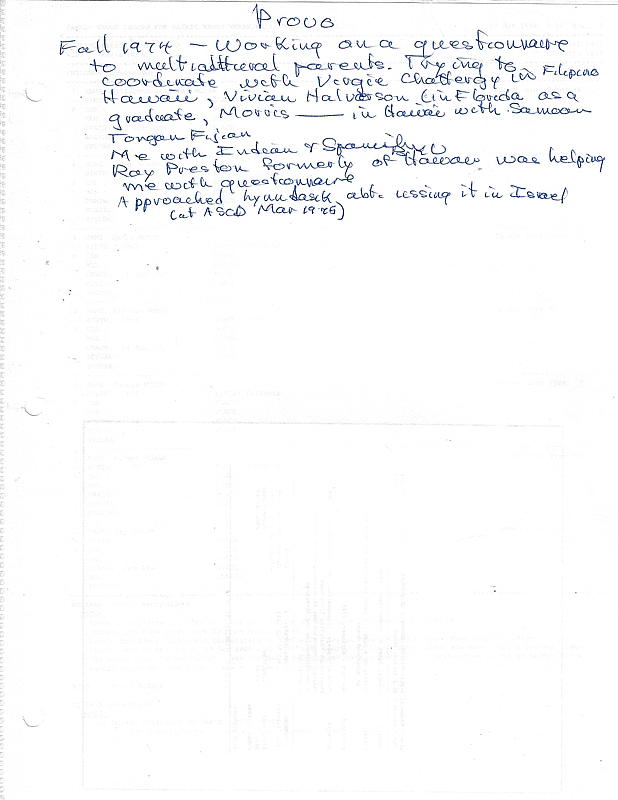 Provo
Fall 1974 – Working on a questionnaire
to multicultural parents. Trying to
coordinate with Virgie Chattergy in Filipino
Hawaii, Vivian Halverson (in Florida as a
graduate, Morris —— in Hawaii with Samoan
Tongan Fijian
Me with Indian & Spanish
Ray Preston formerly of Hawaii was helping
me with questionnaire
Approached abt. using it in Israel
(at ASCD Mar 1975)